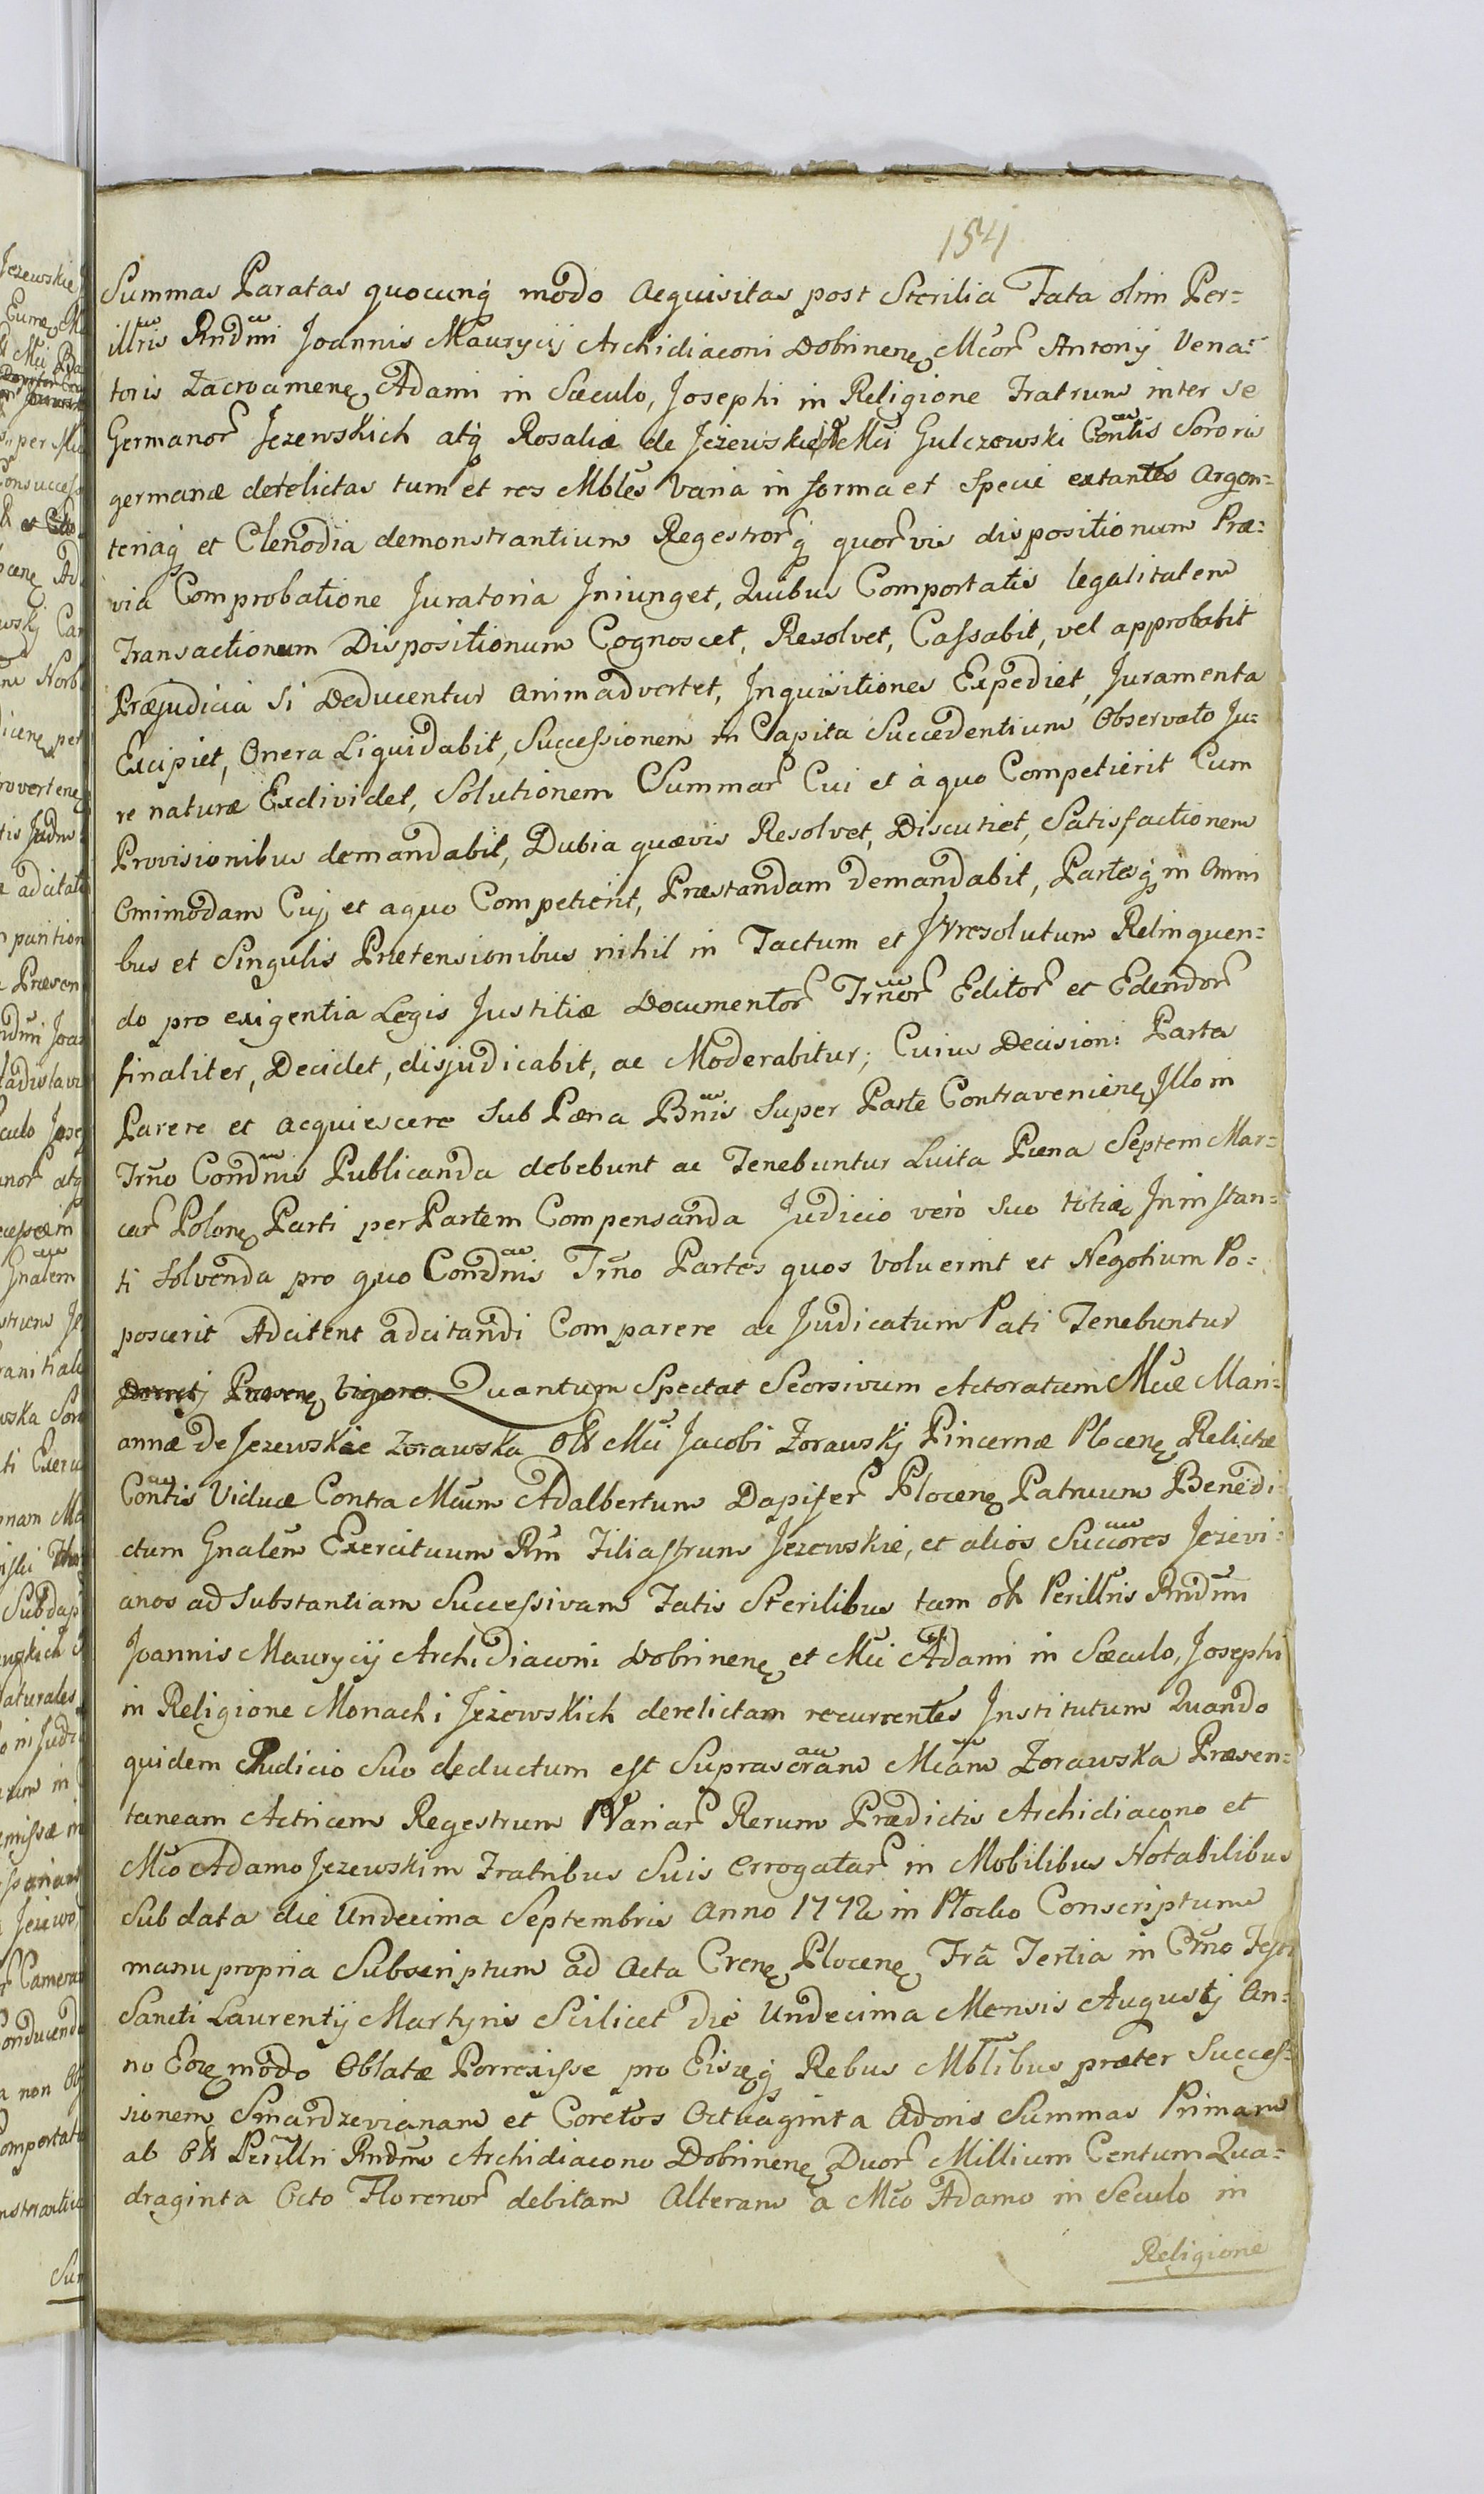 154
Summas Paratas quocunq modo acquisitas post Sterilia Fata olim Per=
illris Rndmi Joannis Maurycij Archidiaconi Dobrinen Mcor Antonij Vena=
toris Zacrocimen Adami in Sæculo, Josephi in Religione Fratrum inter se
Germanor Jezewskich atq Rosaliæ de Jezewskie Mci Gulczewski Contis Sororis
germanæ derelictas tum et res Mbles Varia in forma et Specie extantes argen=
teriaq et Clenodia demonstrantium Regestrorq quorvis dispositionum Præ=
via Comprobatione Juratoria Iniunget, Quibus Comportatis legalitatem
Transactionum Dispositionum Cognoscet, Resolvet, Cassabit, vel approbabit
Præjudicia Si Deducentur animadvertet, Inquisitiones Expediet, Juramenta
Excipiet, Onera Liquidabit, Successionem in Capita Succedentium Observato Ju=
re naturæ Exdividet, Solutionem Summar Cui et à quo Competierit Cum
Provisionibus demandabit, Dubia quævis Resolvet, Discutiet, Satisfactionem
Omimodam Cuj et aquo Competierit, Præstandam demandabit, Partesq in Omni
bus et Singulis Prætensionibus nihil in Tactum et Irresolutum Relinquen=
do pro exigentia Legis Justitiæ Documentor Trnor Editor et Edendor
finaliter, Decidet, disjudicabit, ac Moderabitur; Cuius Decisioni Partes
Parere et acquiescere Sub Pæna Bnnis Super Parte Contravenien Illo in
Trno Condnis Publicanda debebunt ac Tenebuntur Luita Pæna Septem Mar=
car Polon Parti per Partem Compensanda Judicio vero Suo toties In instan=
ti solvenda pro quo Condnis Trno Partes quos Voluerint et Negotium Po=
poscerit Adcitent adcitandi Comparere ac Judicatum Pati Tenebuntur
Decreti Præsen Vigore. Quantum Spectat Seorsivum Actoratum Mcæ Mari=
annæ De Jezewskie Zorawska Olt Mci Jacobi Zorawskj Pincernæ Plocen Relictæ
Contis Viduæ Contra Mcum Adalbertum Dapifer Plocen Patruum Benedi=
ctum Gnalem Exercituum Rm Filiastrum Jezewskie, et alios Succores Jezevi=
anos ad Substantiam Successivam Fatis Sterilibus tam olt Perillris Rndmi
Joannis Maurycij Archidiaconi Dobrinen et Mci Adami in Sæculo, Josephi
in Religione Monachi Jezewskich derelictam recurrentes Institutum Quando
quidem Judicio Suo deductum est Suprascram Mcam Zorawska Præsen=
taneam Actricem Regestrum Variar Rerum Prædictis Archidiacono et
Mco Adamo Jezewskim Fratribus Suis Errogatar in Mobilibus Notabilibus
Sub data die Undecima Septembris Anno 1772 in Plocko Conscriptum
manu propria Subscriptum ad Acta Cren Plocen Fra Tertia in Crno Festi
Sancti Laurentij Martyris Scilicet Die Undecima Mensis Augusti An=
no Eoze modo Oblatæ Porrexisse pro Eiszq Rebus Mblibus præter Succes=
sionem Smardzevianam et Coretos Octuaginta Adoris Summas Primam
ab Olt Perillri Rndmo Archidiacono Dobrinen Duor Millium Centum Qua=
draginta Octo Florenor debitam Alteram a Mco Adamo in Seculo in
Religione